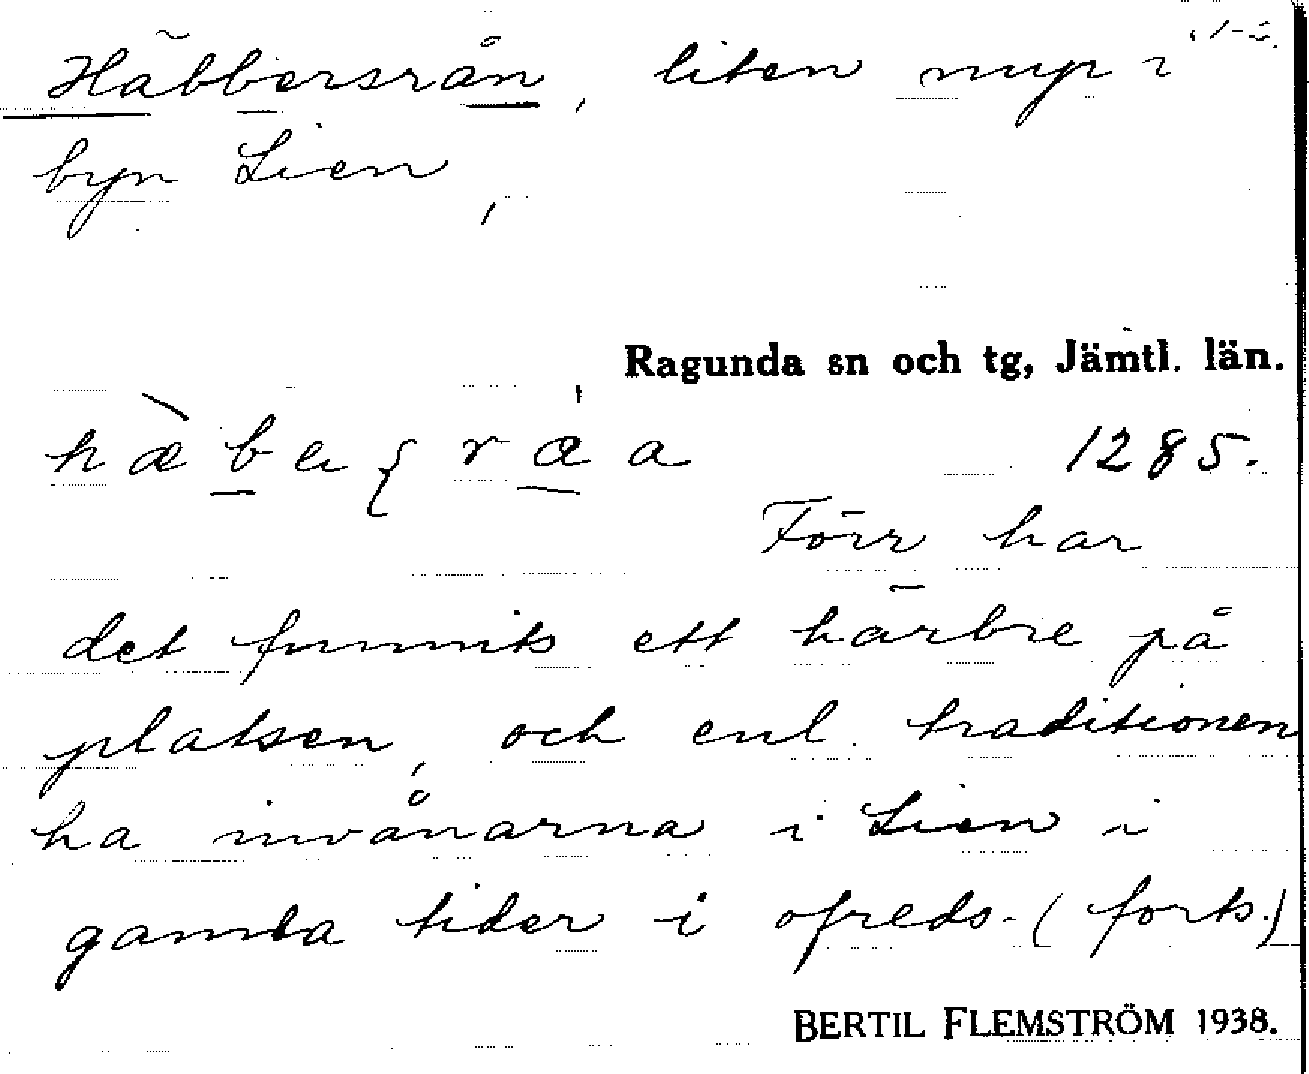 Häbbersrån, liten myr i
byn Lien,
Ragunda sn och tg, Jämtl. län.
1285.
Förr har
det funnits ett härbre på
platsen, och enl. traditionen
ha invånarna i Lien i
gamla tider i ofreds- (forts.)
BERTIL FLEMSTRÖM 1938.